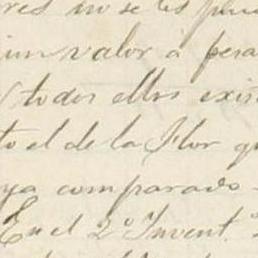 res no se les pue
un valor á pesa
todos ellos exis
to el de la Flor qu
ya comparado
En el 2º Invent.º